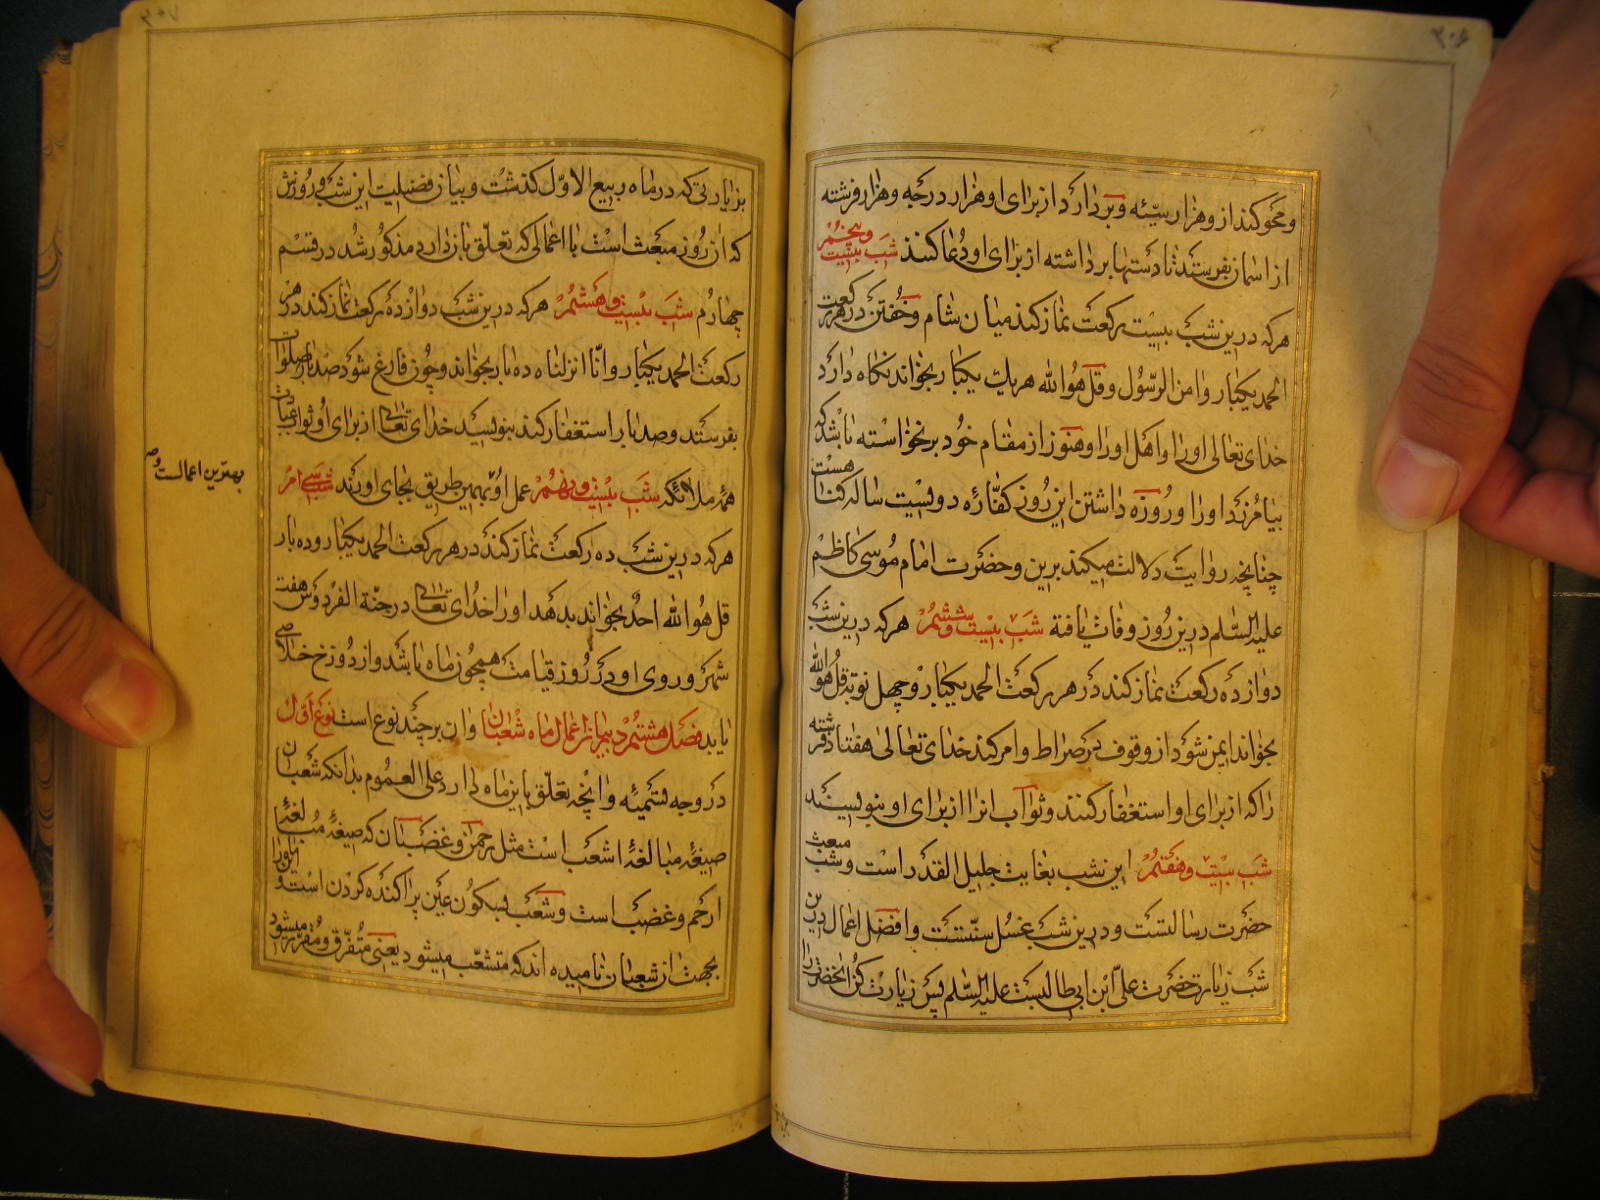 ۳۰۶
و محو کند از و هزار سیّئه و بردارد از برای او هزار درجه و هزار فرشته
از اسمان بفرستد تا دستها برداشته از برای او دعا کنند شب بیست و پنجم
هرکه درین شب بیست رکعت نماز کند میان شام و خفتن در هر رکعت
الحمد یکبار و امن الرسول و قل هو الله هر یک یکبار بخواند نکاه دارد
خدای تعالی او را و اهل او را و هنوز از مقام خود برنخواسته باشد که
بیامرزد او را و روزه داشتن این روز کفّاره دویست ساله کناهست
چنانچه روایت دلالت میکند برین و حضرت امام موسی کاظم
علیه السّلم درین روز وفات یافته شب بیست و ششم هرکه درین شب
دوازده رکعت نماز کند در هر رکعت الحمد یکبار و چهل نوبه قل هو الله
بخواند ایمن شود از وقوف بر صراط و امر کند خدای تعالی هفتاد فرشته
را که از برای او استغفار کنند و ثواب انرا از برای او بنویسند
شب بیست و هفتم این شب بغایت جلیل القدر است و شب مبعث
حضرت رسالتست و درین شب غسل سنّتست و افضل اعمال درین
شب زیارت حضرت علی ابن ابی طالبست علیه السّلم پس زیارت کن انحضرت را
۳۰۷
بزیارتی که در ماه ربیع الاوّل کذشت و بیان فضیلت این شب و روزش
که ان روز مبعث است با اعمالی که تعلّق بان دارد مذکور شد در قسم
چهارم شب بیست و هشتم هرکه درین شب دوازده رکعت نماز کند در هر
رکعت الحمد یکبار و انّا انزلناه ده بار بخواند و چون فارغ شود صد بار صلوات
بفرستد و صد بار استغفار کند بنویسد خدای تعالی از برای او ثواب عبادت
همه ملائکه شب بیست و نهم عمل او بهمین طریق بجای اورند شب سی ام
هرکه درین شب ده رکعت نماز کند در هر رکعت الحمد یکبار و ده بار
قل هو الله احد بخواند بدهد او را خدای تعالی در جنّة الفردوس هفت
شهر و روی او در روز قیامت همچون ماه باشد و از دوزخ خلاصی
یابد فصل هشتم در بیان اعمال ماه شعبان و ان بر چند نوع است نوع اول
در وجه تسمیه و انچه تعلّق باین ماه دارد علی العموم بدانکه شعبان
صیغه مبالغهٔ اشعب است مثل رحمن و غضبان که صیغهٔ مبالغهٔ
ارحم و غضب است و شعب بسکون عین پراکنده کردن است و
بجهت ان شعبان نامیده اند که متشعّب میشود یعنی متفرّق و مقرّر میشود
بهترین اعمالست